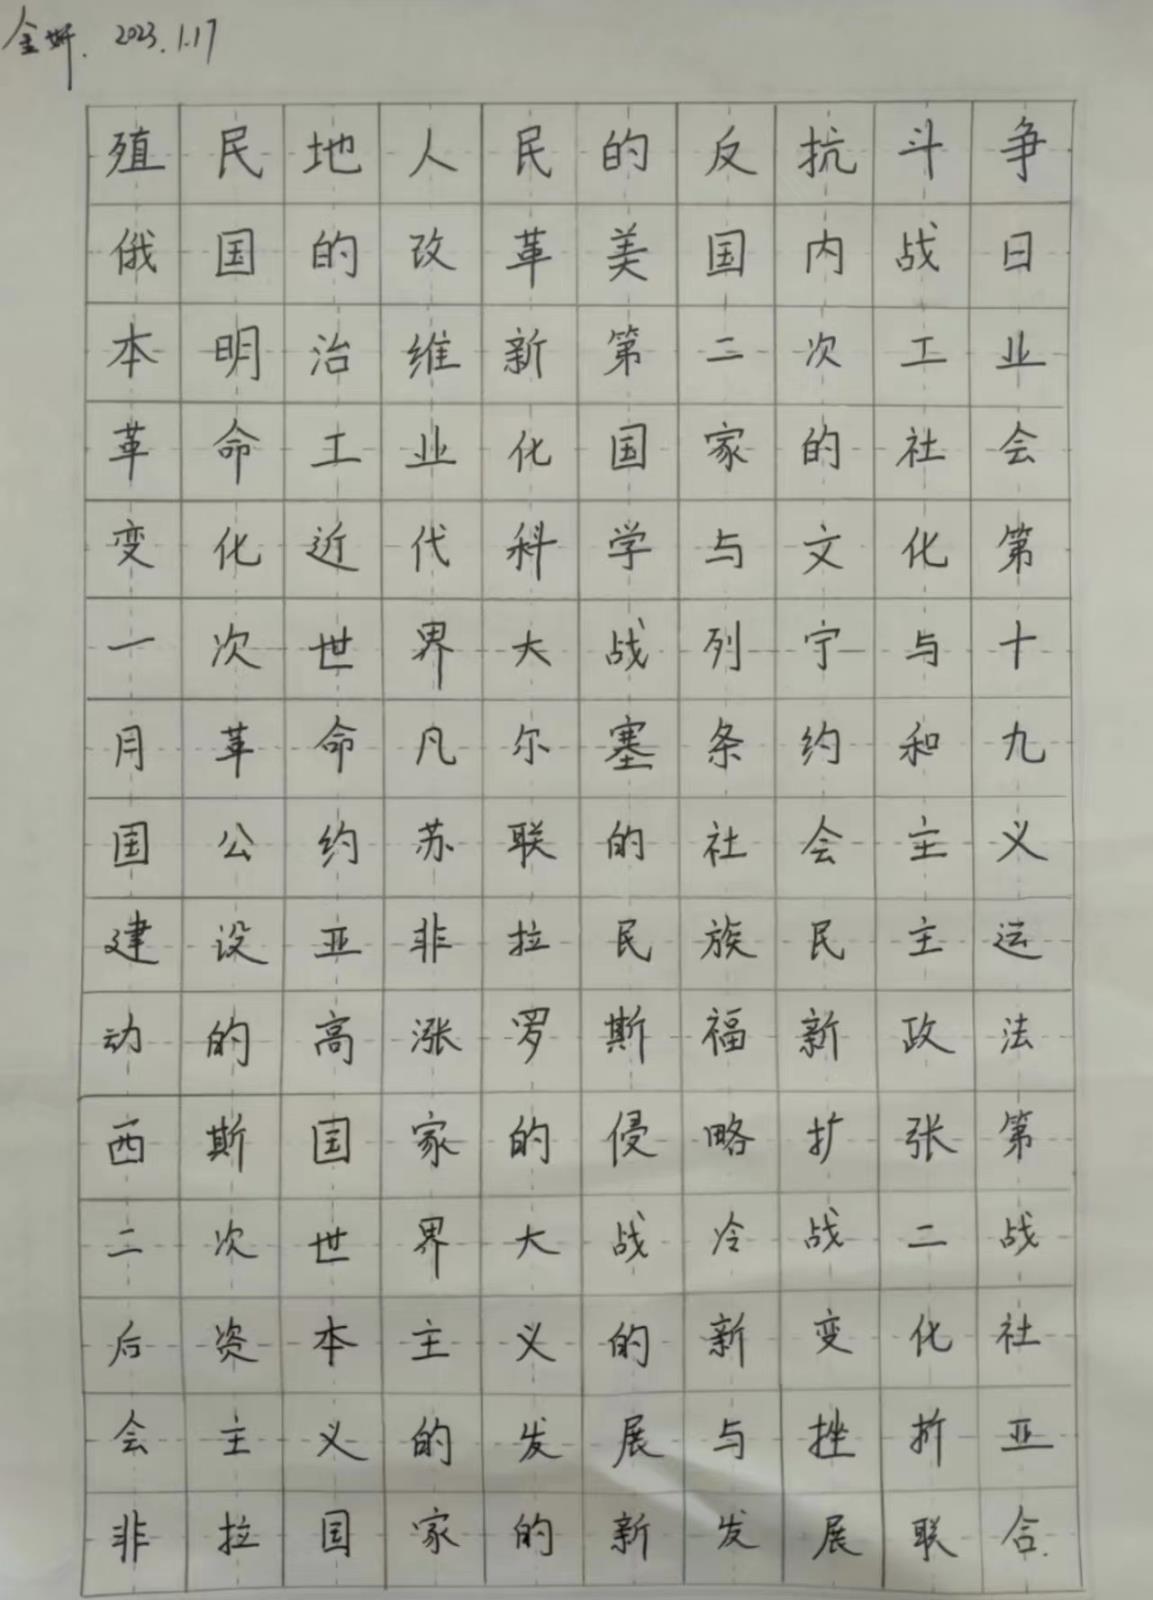 金妍. 2023.1.17
殖民地人民的反抗斗争
俄国的改革美国内战日
本明治维新第二次工业
革命工业化国家的社会
变化近代科学与文化第
一次世界大战列宁与十
月革命凡尔塞条约和九
国公约苏联的社会主义
建设亚非拉民族民主运
动的高涨罗斯福新政法
西斯国家的侵略扩张第
二次世界大战冷战二战
后资本主义的新变化社
会主义的发展与挫折亚
非拉国家的新发展联合.